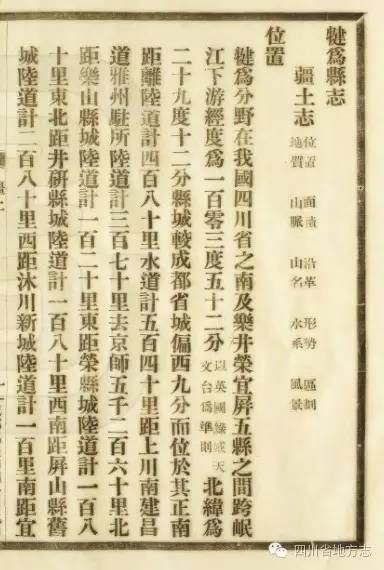 犍為縣志
疆土志 位置 面積 沿革 形勢 區劃
地質 山脈 山名 水系 風景
位置
犍為分野在我國四川省之南及樂井榮宜屏五縣之間跨岷
江下游經度為一百零三度五十二分以英國綠威天文台為準則北緯為
二十九度十二分縣城較成都省城偏西九分而位於其正南
距離陸道計四百八十里水道計五百四十里距上川南建昌
道雅州駐所陸道計三百七十里去京師五千二百六十里北
距樂山縣城陸道計一百二十里東距榮縣城陸道計一百八
十里東北距井研縣城陸道計一百八十里西南距屏山縣舊
城陸道計二百八十里西距沐川新城陸道計一百里南距宜
四川省地方志